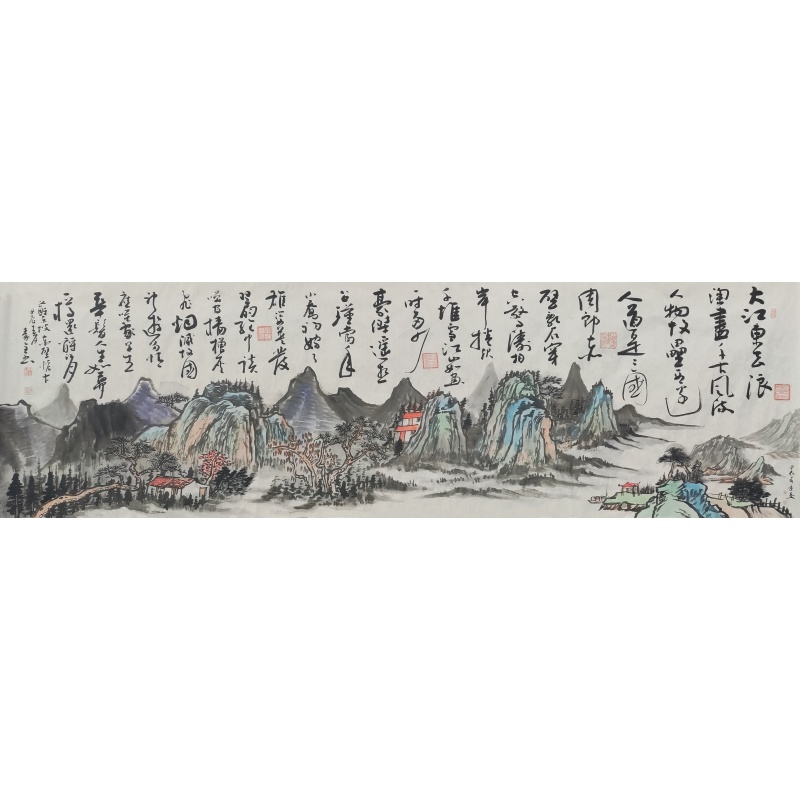 大江東去浪
淘盡千古風流
人物故壘西邊
人道是三國
周郎赤
壁亂石穿
空驚濤拍
岸捲起
千堆雪江山如畫
一時多少
豪傑遙想
公瑾當年
小喬初嫁了
雄姿英發
羽扇綸巾談
笑間檣櫓灰
飛烟滅故國
神遊多情
應笑我早生
華髮人生如夢
一樽還酹江月